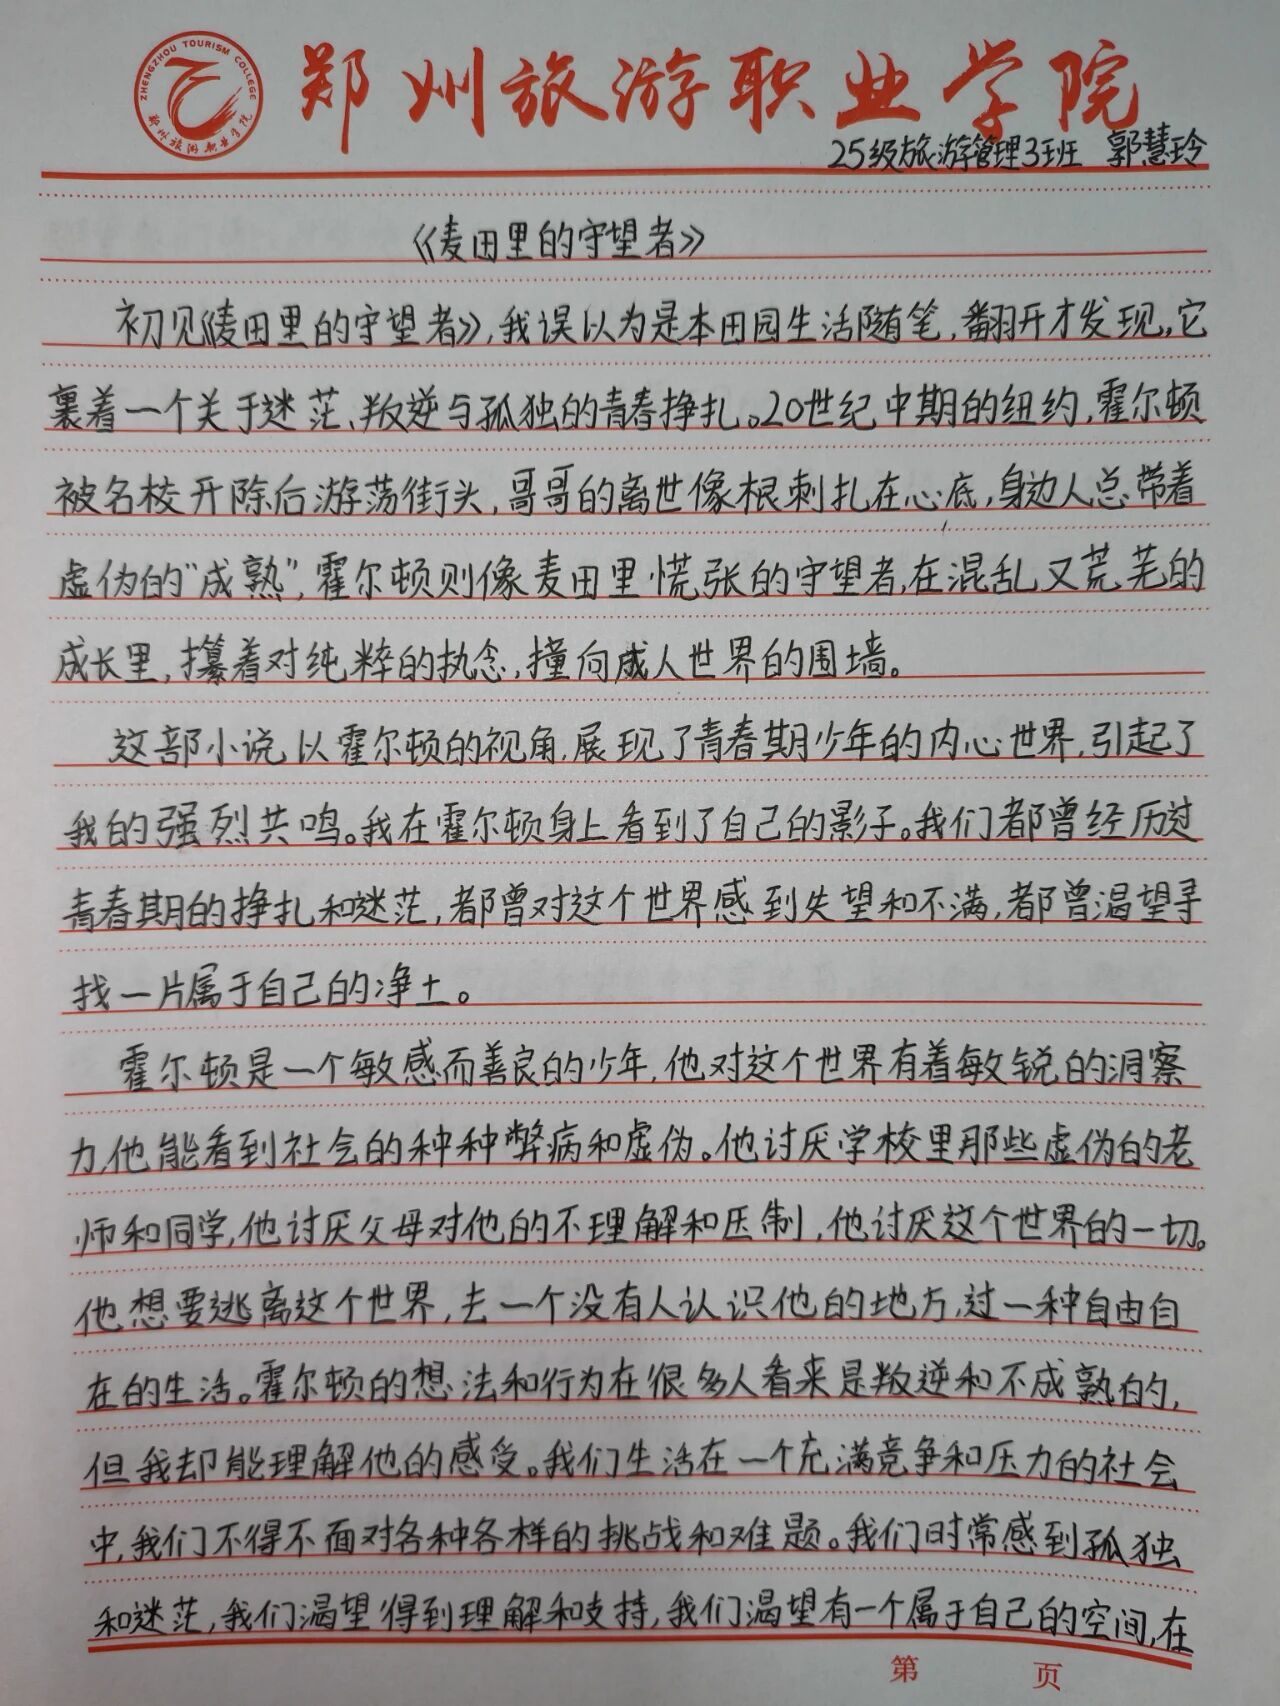 ZHENGZHOU TOURISM COLLEGE
郑州旅游职业学院
郑州旅游职业学院
25级旅游管理3班 郭慧玲
《麦田里的守望者》
初见《麦田里的守望者》,我误以为是本田园生活随笔,翻开才发现,它
裹着一个关于迷茫、叛逆与孤独的青春挣扎。20世纪中期的纽约,霍尔顿
被名校开除后游荡街头,哥哥的离世像根刺扎在心底,身边人总带着
虚伪的"成熟",霍尔顿则像麦田里慌张的守望者,在混乱又荒芜的
成长里,攥着对纯粹的执念,撞向成人世界的围墙。
这部小说以霍尔顿的视角,展现了青春期少年的内心世界,引起了
我的强烈共鸣。我在霍尔顿身上看到了自己的影子。我们都曾经历过
青春期的挣扎和迷茫,都曾对这个世界感到失望和不满,都曾渴望寻
找一片属于自己的净土。
霍尔顿是一个敏感而善良的少年,他对这个世界有着敏锐的洞察
力,他能看到社会的种种弊病和虚伪。他讨厌学校里那些虚伪的老
师和同学,他讨厌父母对他的不理解和压制,他讨厌这个世界的一切。
他想要逃离这个世界,去一个没有人认识他的地方,过一种自由自
在的生活。霍尔顿的想法和行为在很多人看来是叛逆和不成熟的,
但我却能理解他的感受。我们生活在一个充满竞争和压力的社会
中,我们不得不面对各种各样的挑战和难题。我们时常感到孤独
和迷茫,我们渴望得到理解和支持,我们渴望有一个属于自己的空间,在
第 页